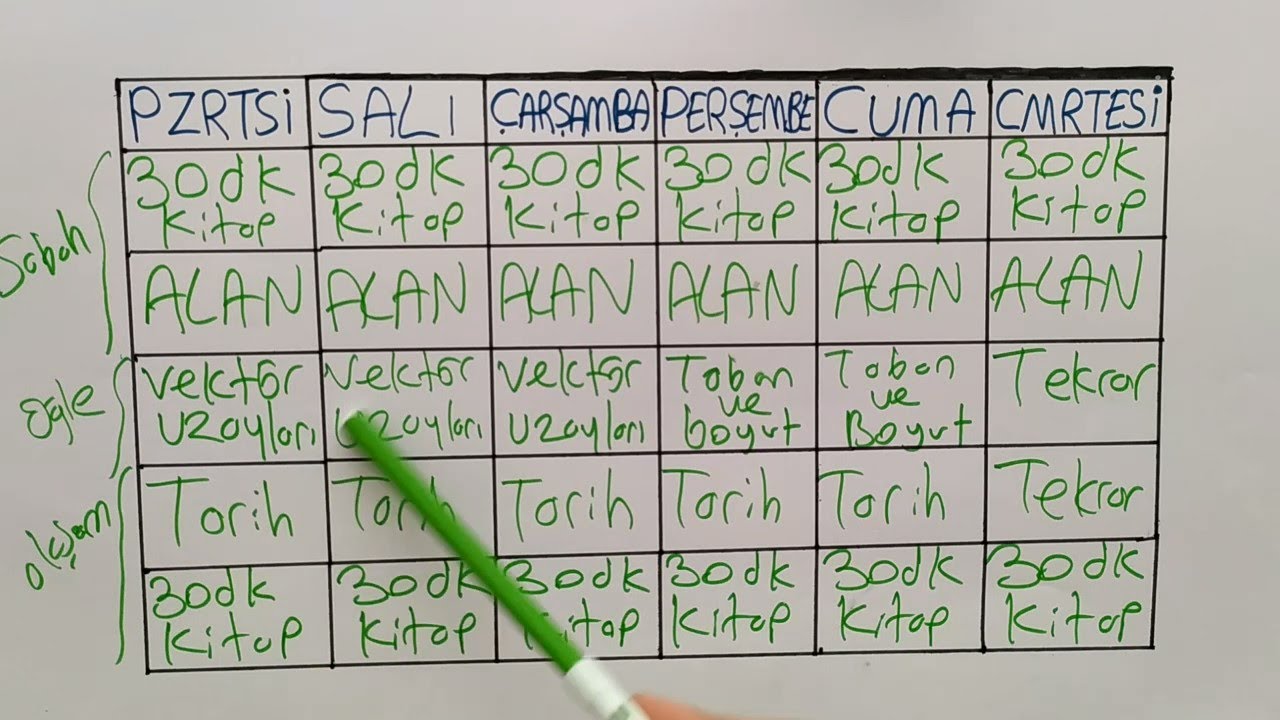 PZRTSİ SALI ÇARŞAMBA PERŞEMBE CUMA CMRTESİ
Sabah
30dk 30dk 30dk 30dk 30dk 30dk
Kitap Kitap Kitap Kitap Kitap Kitap
ALAN ALAN ALAN ALAN ALAN ALAN
öğle
Vektör Vektör Vektör Taban Taban Tekrar
ve ve
Uzayları Uzayları Uzayları boyut Boyut
akşam
Tarih Tarih Tarih Tarih Tarih Tekrar
30dk 30dk 30dk 30dk 30dk 30dk
Kitap Kitap Kitap Kitap Kitap Kitap